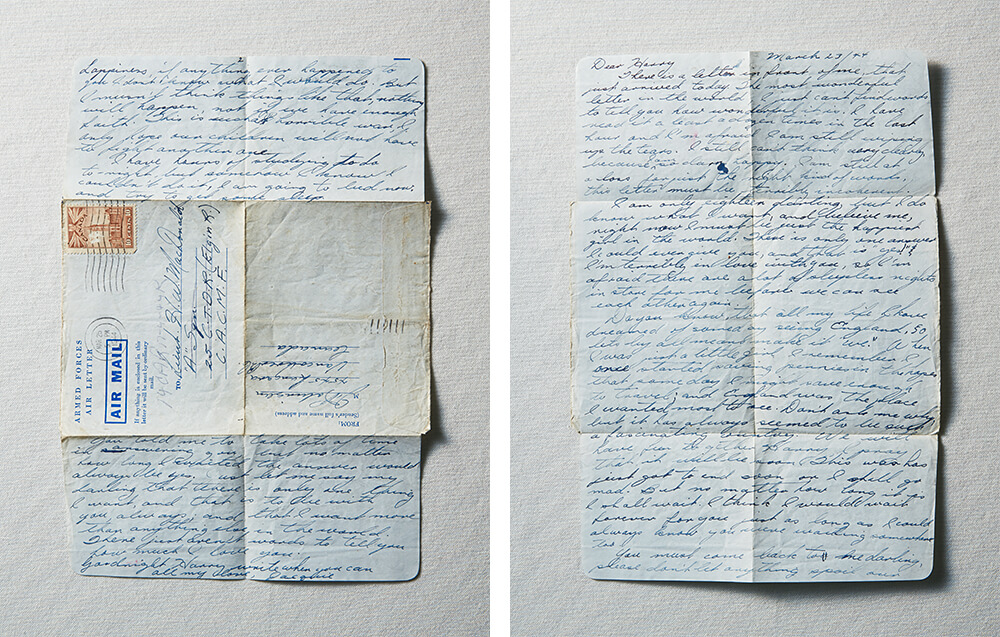 March 23/44
Dear Harry
There is a letter in front of me, that
just arrived today. The most wonderful
letter in the world. I just can't find words
to tell you how wonderful it is. I have
read it at least a dozen times in the last
hour and I'm afraid I am still
up the tears. I still can't think very clearly
because I'm so happy. I am still at
a loss for just the right kind of words,
this letter must be terribly incoherent.
I am only eighteen darling, but I do
know what I want, and believe me,
right now I must be just the happiest
girl in the world. There is only one answer
I could ever give you, and that is "yes"!
I'm terribly in love with you so I'm
afraid there are a lot of sleepless nights
in store for me before we can see
each other again.
Do you know, that all my life I have
dreamed of someday seeing England, so
let's by all means make it "we". When
I was just a little girl, I remember I
once started putting pennies in
that some day I might save enough
to travel, and England was the place
I wanted most to see. Don't ask me why
but it has always seemed to be such
a fascinating country. We will
have fun together Harry. I pray
that it will be soon. This war has
just got to end soon or I shall go
mad. But no matter how long it is
I shall wait. I think I would wait
forever for you just as long as I could
always know you were waiting somewhere
too.
You must come back to me darling,
please don't let anything spoil our
2
happiness, if anything ever happened to
you I don't know what I would do. But
I mustn't think things like that, nothing
will happen, not if we have enough
faith. This is such a horrible war I
only hope our children will not have
to fight another one.
I have hours of studying to do
to-night, but somehow I know I
couldn't do it, I am going to bed now,
and get some sleep.
ARMED FORCES
AIR LETTER
AIR MAIL
If anything is enclosed in this
letter it will be sent by ordinary
mail.
CANADA
10 CENTS 10
TO:
25 C.A.D.R. (Elgin R)
C.A.C. M.F.
FROM:
(Sender's full name and address)
Vancouver
Canada
You told me to take lots of time
in answering you, but no matter
how long I waited the answer would
always be yes, so let me say my
darling that there is only one thing
I want, and that is to be with
you always, and that I want more
than anything else in the world.
There just aren't words to tell you
how much I love you.
Goodnight Harry, write when you can
all my love, Jacquie